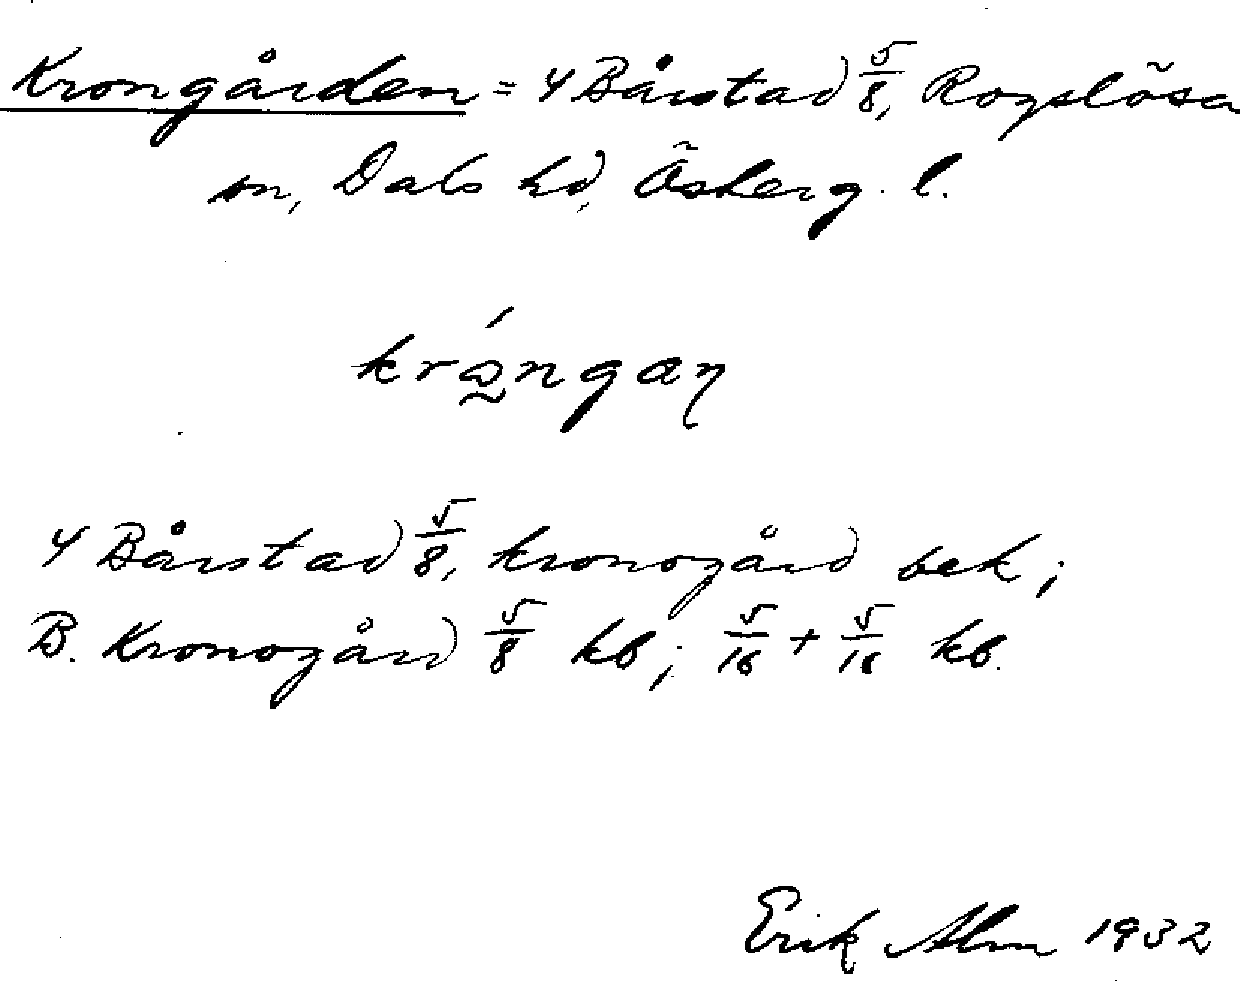 Krongården = 4 Bårstad 5/8, Rogslösa
sn, Dals hd, Österg. l.
krɷ́ngaɳ
4 Bårstad 5/8, kronogård bek;
B. Kronogård 5/8 kb; 5/16 + 5/16 kb.
Erik Alm 1932